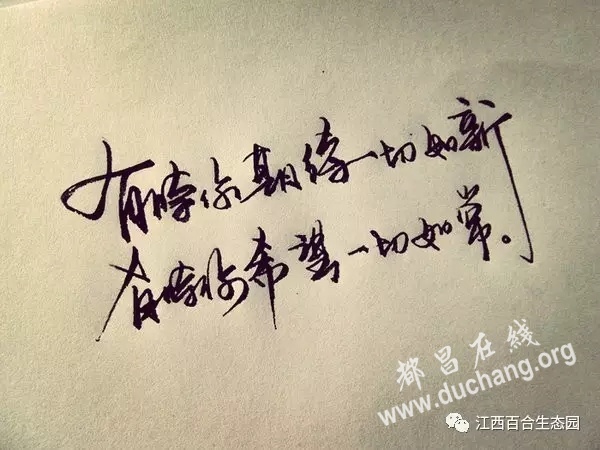 有时你期待一切如新
有时你希望一切如常。
都昌在线
www.duchang.org
江西百合生态园